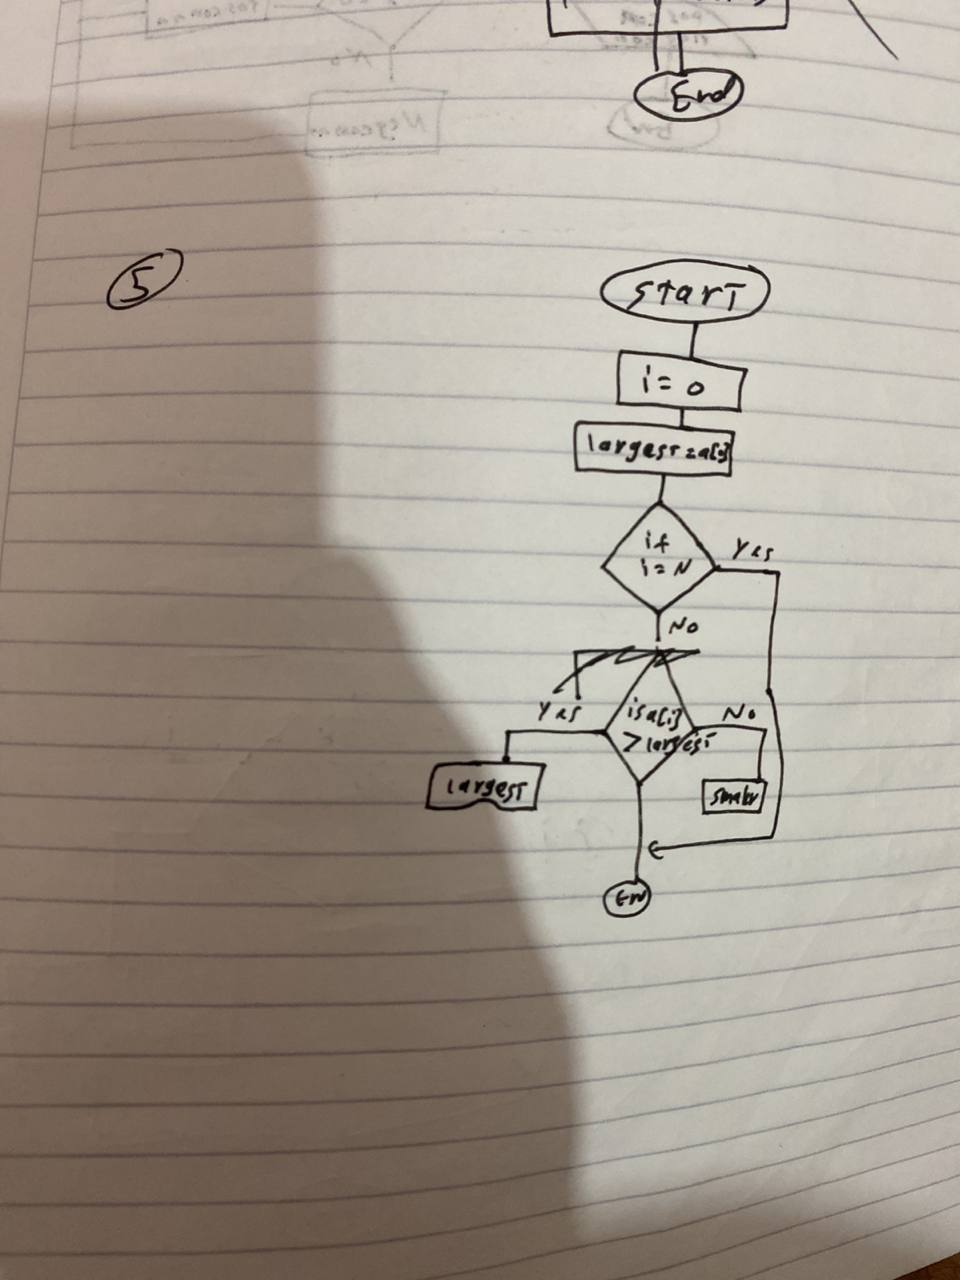 End
5
Start
i = 0
largest = a[i]
if
i = N
Yes
No
Yes
is a[i]
> largest
No
largest
En